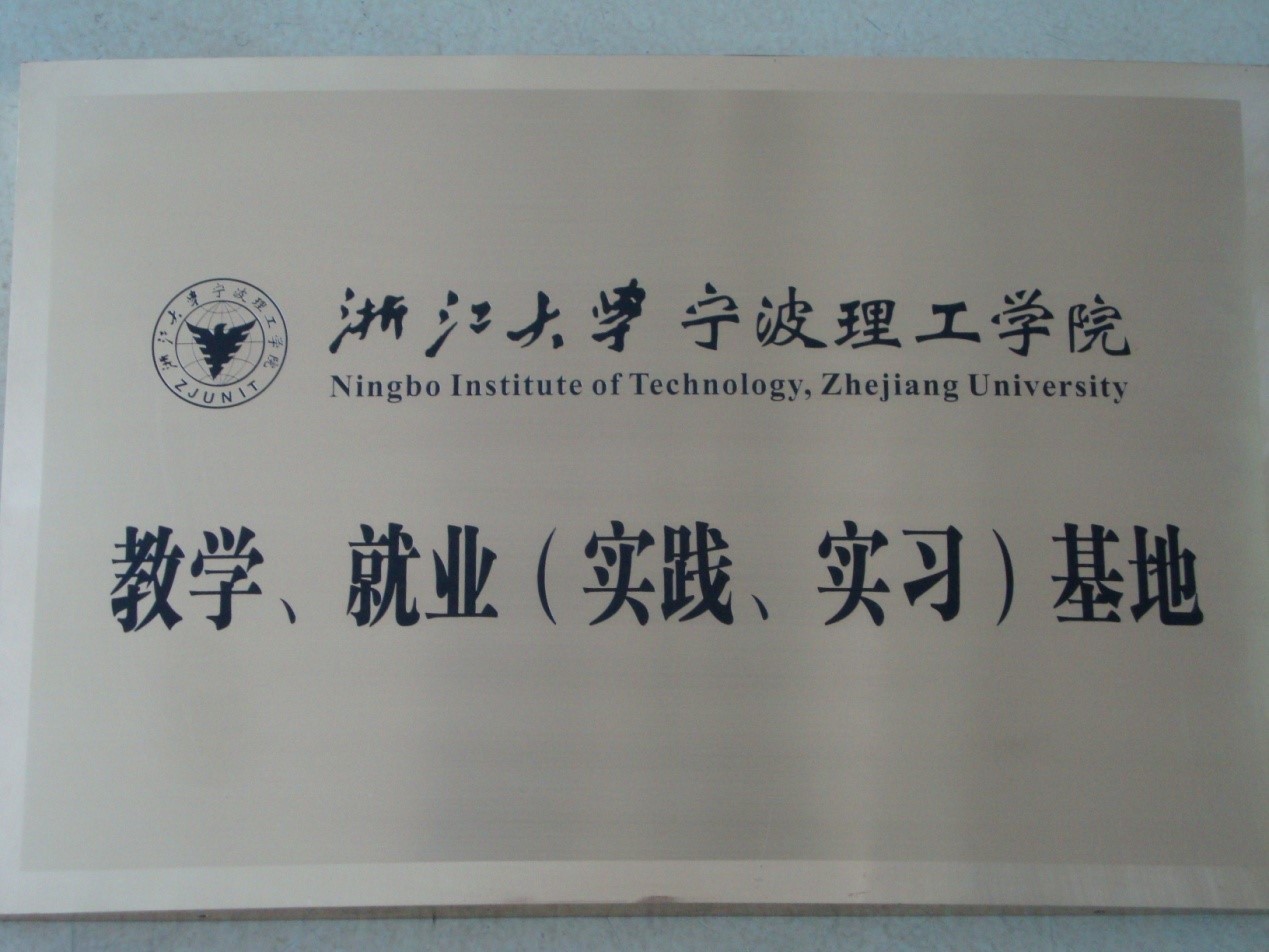 浙江大学宁波理工学院
ZJUNIT
浙江大学 宁波理工学院
Ningbo Institute of Technology, Zhejiang University
教学、就业（实践、实习）基地